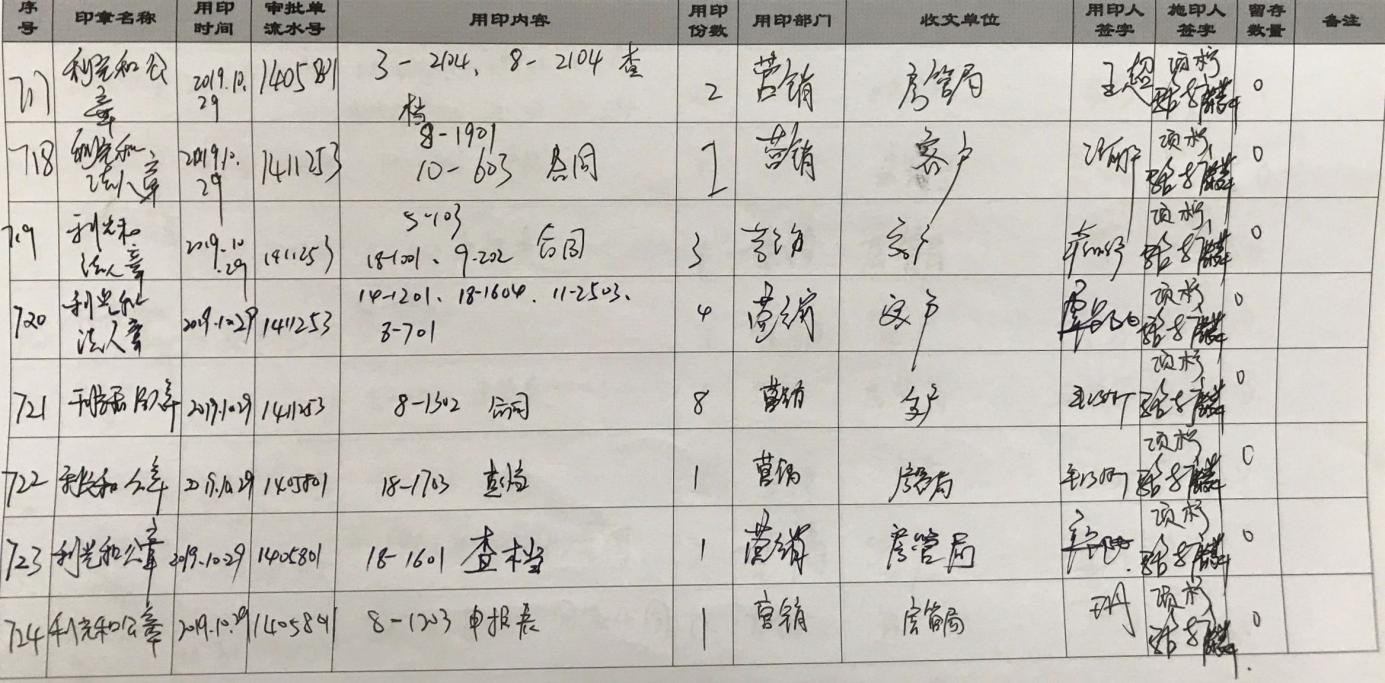 序号 印章名称 用印时间 审批单流水号 用印内容 用印份数 用印部门 收文单位 用印人签字 施印人签字 留存数量 备注
717 利光和公章 2019.10.29 1405801 3-2104、8-2104 查档 2 营销 房管局 王超 0
718 利光和法人章 2019.10.29 1411253 8-1901 10-603 合同 2 营销 客户 0
719 利光和法人章 2019.10.29 1411253 5-103 18-1001、9-202 合同 3 营销 客户 0
720 利光和法人章 2019.10.29 1411253 14-1201、18-1604、11-2503、3-701 4 营销 客户 0
721 2019.10.29 1411253 8-1302 合同 8 营销 客户 0
722 利光和公章 2019.10.29 1405801 18-1703 查档 1 营销 房管局 0
723 利光和公章 2019.10.29 1405801 18-1601 查档 1 营销 房管局 0
724 利光和公章 2019.10.29 1405801 8-1203 申报表 1 营销 房管局 0